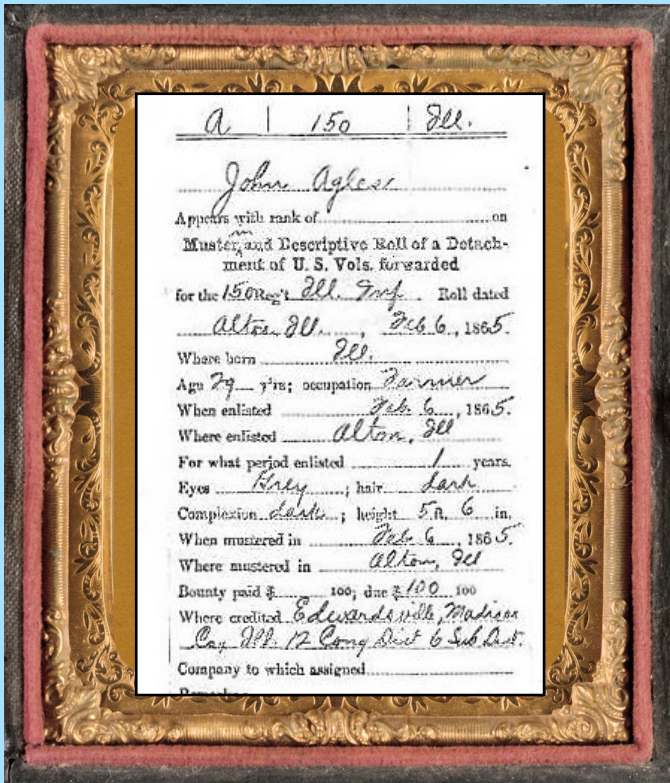 A | 150 | Ill.
John Agles
Appears with rank of on
Muster and Descriptive Roll of a Detach-
ment of U. S. Vols. forwarded
for the 150 Reg't Ill. Inf. Roll dated
Alton Ill. , Feb 6 , 1865.
Where born Ill.
Age 29 y'rs; occupation Farmer
When enlisted Feb. 6 , 1865.
Where enlisted Alton, Ill
For what period enlisted 1 years.
Eyes Grey ; hair dark
Complexion dark ; height 5 ft. 6 in.
When mustered in Feb. 6 , 1865.
Where mustered in Alton, Ill
Bounty paid $ 100; due $100 100
Where credited Edwardsville, Madison
Co., Ill. 12 Cong Dist 6 Sub Dist.
Company to which assigned